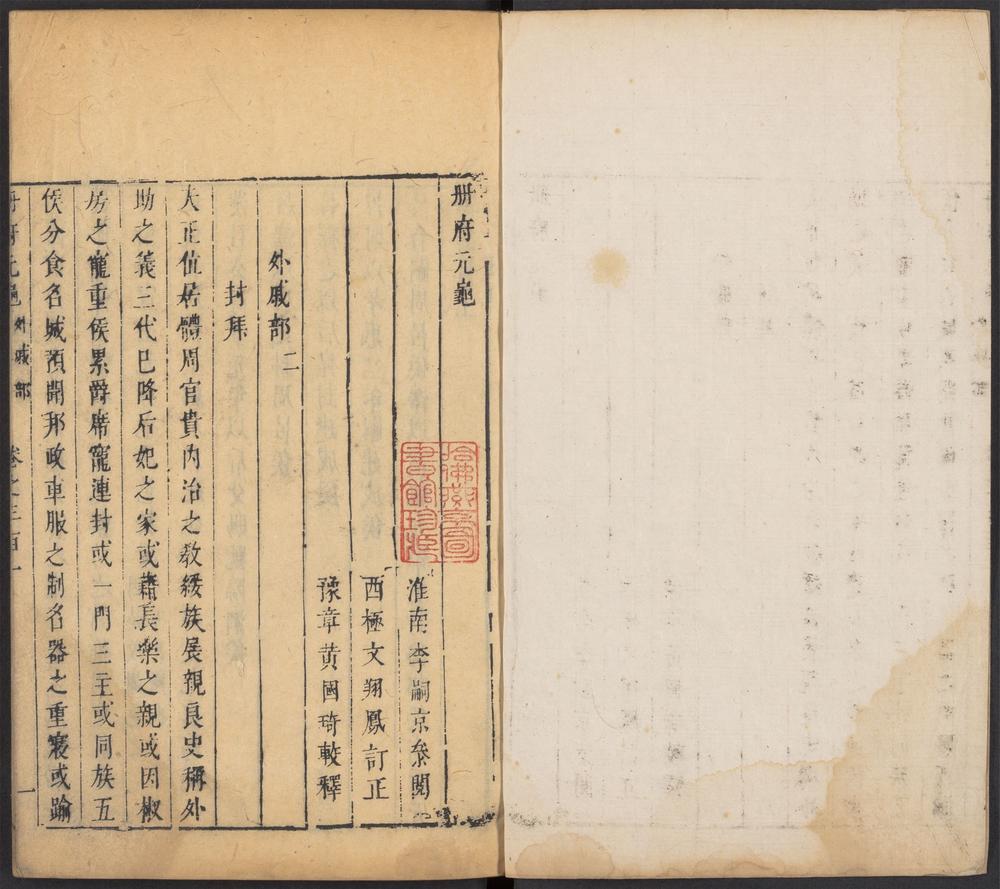 册府元龜
淮南李嗣京叅閱
西極文翔鳳訂正
豫章黃國琦較釋
外戚部二
封拜
大正位居體周官貴内治之敎綏族展親良史稱外
助之義三代已降后妃之家或藉長樂之親或因椒
房之寵重侯累爵席寵連封或一門三主或同族五
侯分食名城預聞邦政車服之制名器之重寔或踰
册府元龜 外戚部 卷之三百一 一
哈佛燕京圖書館珍藏